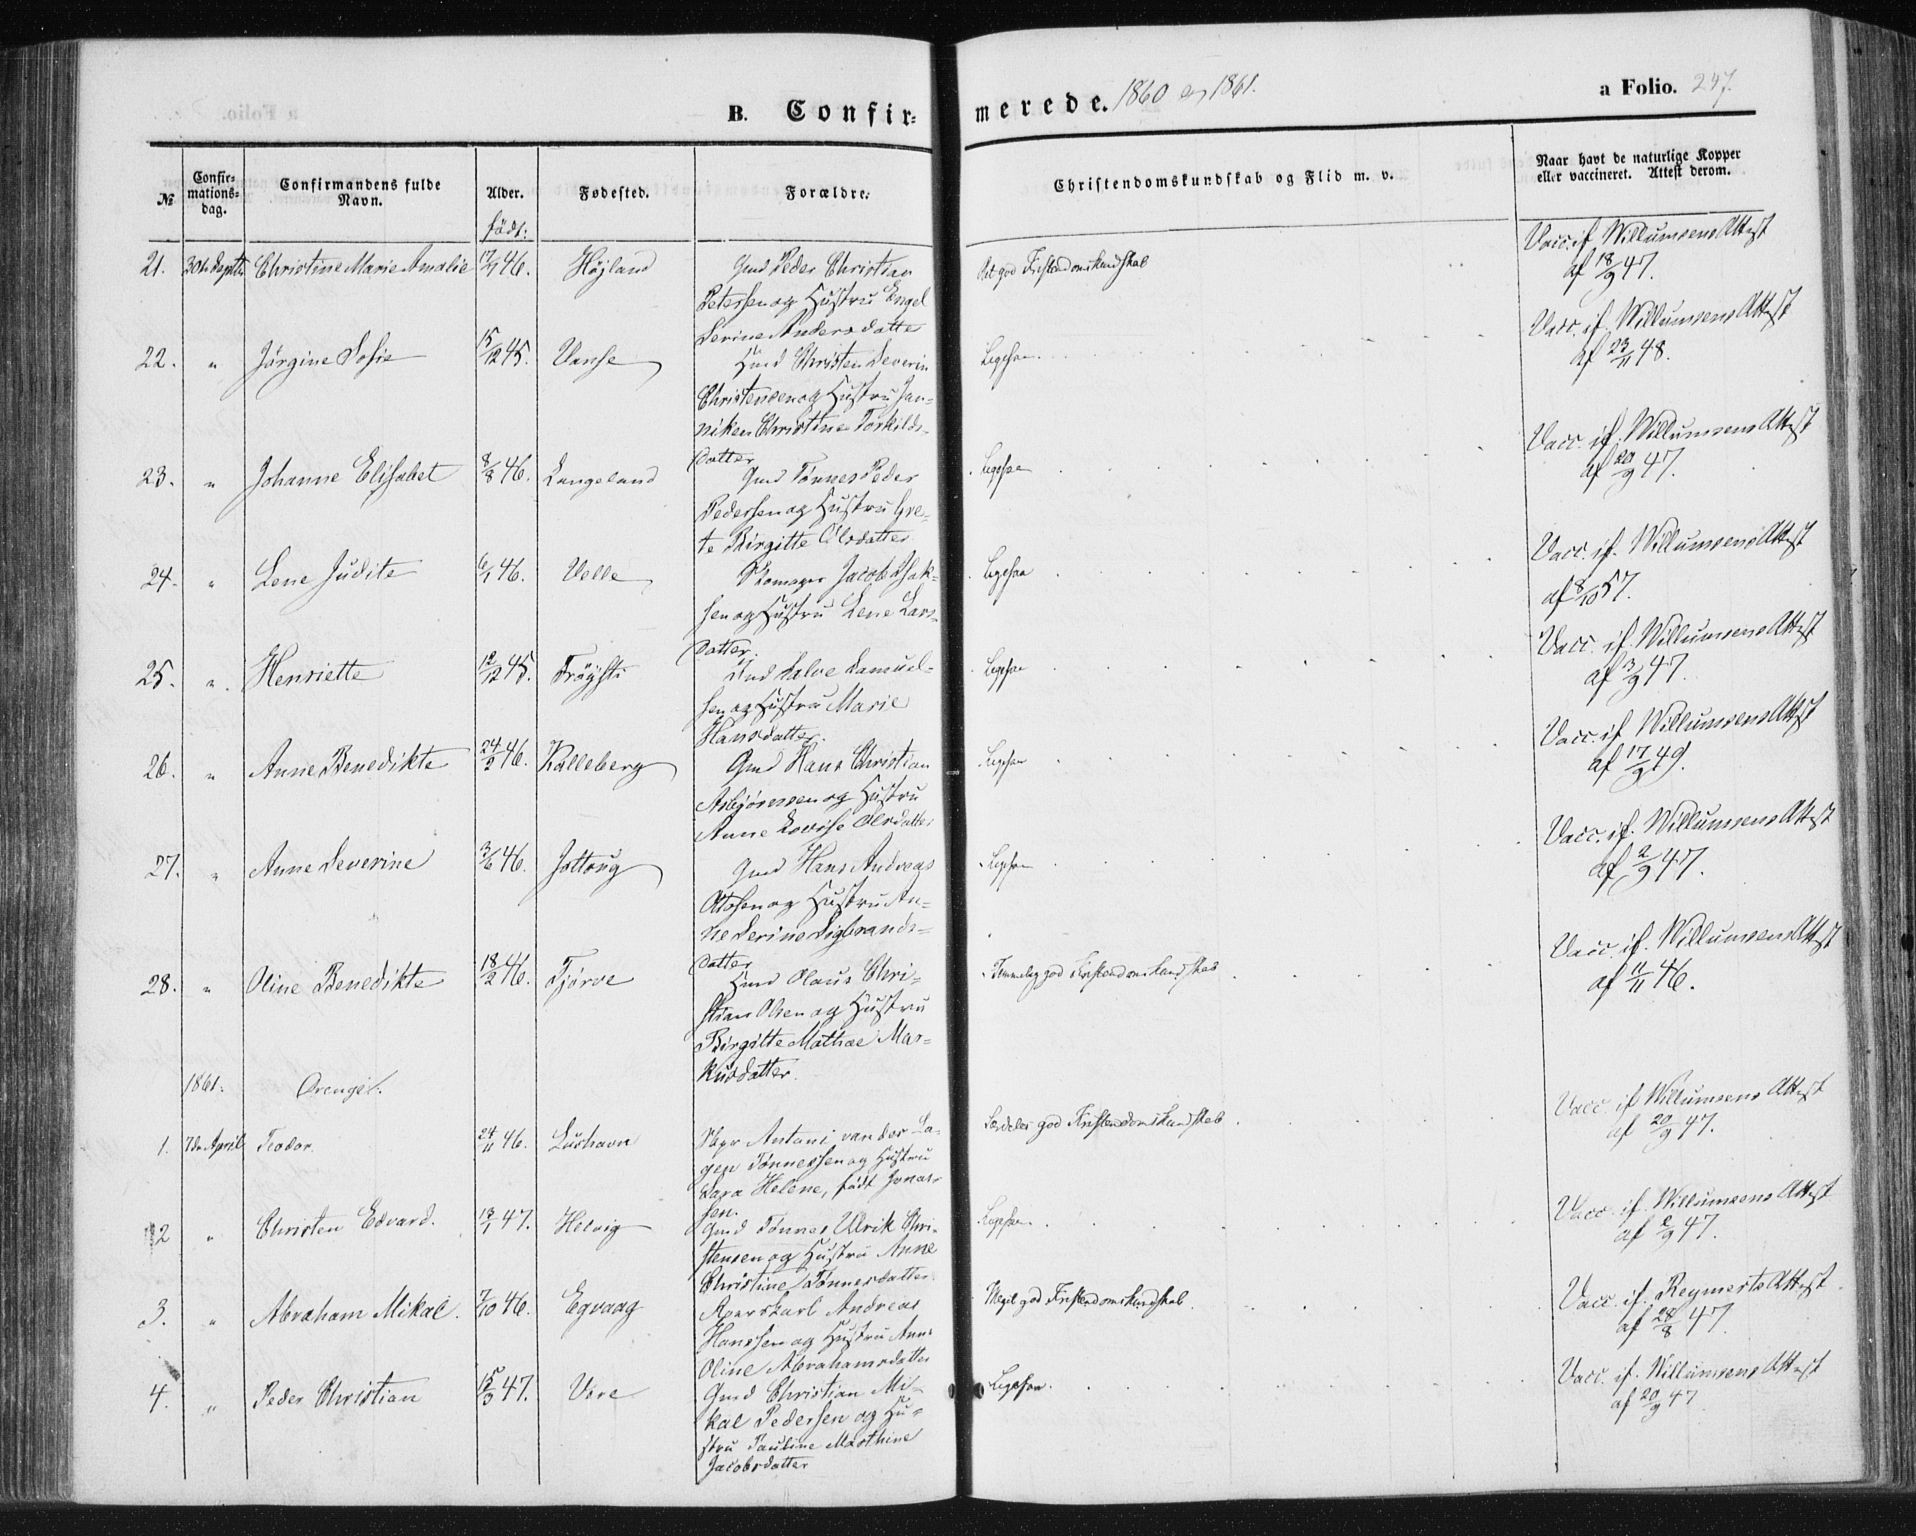 B. Confir-
merede. 1860 og 1861.
a Folio. 247.
№
Confir-
mations-
dag.
Confirmandens fulde
Navn.
Alder.
født:
Fødested.
Forældre.
Christendomskundskab og Flid m. v.
Naar havt de naturlige Kopper
eller vaccineret. Attest derom.
21. 30te Septbr Christine Marie Amalie 17/1 46. Højland
Gmd Peder Christian
Petersen og Hustru Engel
Serine Andersdatter
Ret god Kristendomskundskab
Vacc. if. Willumsens Attest
af 18/9 47.
22. " Jørgine Sofie 15/12 45. Vanse
Hmd Christen Severin
Christensen og Hustru Jan-
niken Christine Torkilds-
datter
Ligesaa.
Vacc. if. Willumsens Attest
af 23/11 48.
23. " Johanne Elisabet 8/8 46. Langeland
Gmd Tønnes Peder
Pedersen og Hustru Gre-
te Birgitte Olsdatter
Ligesaa
Vacc. if. Willumsens Attest
af 20/9 47.
24. " Lene Judite 6/1 46. Velle
Skomager Jacob Isak-
sen og Hustru Lene Lars-
datter.
Ligesaa
Vacc. if. Willumsens Attest
af 8/10 57.
25. " Henriette 12/12 45.
Salve Samuel-
sen og Hustru Marie
Hansdatter.
Ligesaa
Vacc. if. Willumsens Attest
af 3/9 47.
26. " Anne Benedikte 24/2 46. Kalleberg
Gmd Hans Christian
Asbjørnsen og Hustru
Anne Lovise Olsdatter
Ligesaa
Vacc. if. Willumsens Attest
af 17/9 49.
27. " Anne Severine 3/6 46. Jølloug
Gmd Hans Andreas
og Hustru An-
ne Serine Sigbrands-
datter
Ligesaa
Vacc. if. Willumsens Attest
af 2/9 47.
28. " Oline Benedikte 18/2 46. Tjørve
Hmd Olaus Chri-
stian Olsen og Hustru
Birgitte Mathea Mar-
kusdatter.
Temmelig god Kristendomskundskab
Vacc. if. Willumsens Attest
af 11/11 46.
1861. Drenge.
1. 7de April Teodor. 24/11 46. Loshavn
Skpr Antoni van der La-
gen Tønnessen og Hustru
Sara Helene, født Jonas-
sen.
Særdeles god Kristendomskundskab.
Vacc. if. Willumsens Attest
af 20/9 47.
2 " Christen Edvard. 13/1 47. Helvig
Gmd Tønnes Ulrik Chri-
stensen og Hustru Anne
Christine Tønnesdatter
Ligesaa.
Vacc. if. Willumsens Attest
af 2/9 47.
3. " Abraham Mikal. 7/10 46. Egvaag
Andreas
Hanssen og Hustru Anne
Oline Abrahamsdatter
Meget god Kristendomskundskab.
Vacc. if. Reymerts Attest.
af 28/8 47.
4. " Peder Christian 15/3 47. Vere
Gmd Christian Mi-
kal Pedersen og Hu-
stru Pauline Marthine
Jacobsdatter
Ligesaa.
Vacc. if. Willumsens Attest
af 20/9 47